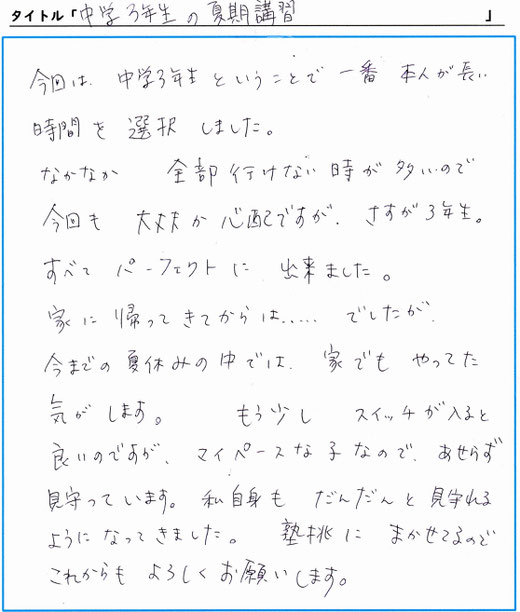 タイトル「中学3年生の夏期講習」
今回は、中学3年生ということで一番 本人が長い
時間を選択しました。
なかなか 全部行けない時が多いので
今回も 大丈夫か心配ですが、さすが3年生。
すべて パーフェクトに 出来ました。
家に帰ってきてからは..... でしたが、
今までの夏休みの中では、家でも やってた
気がします。 もう少し スイッチが入ると
良いのですが、マイペースな子なので、あせらず
見守っています。私自身も だんだんと見守れる
ようになってきました。 塾様に まかせてるので
これからも よろしくお願いします。